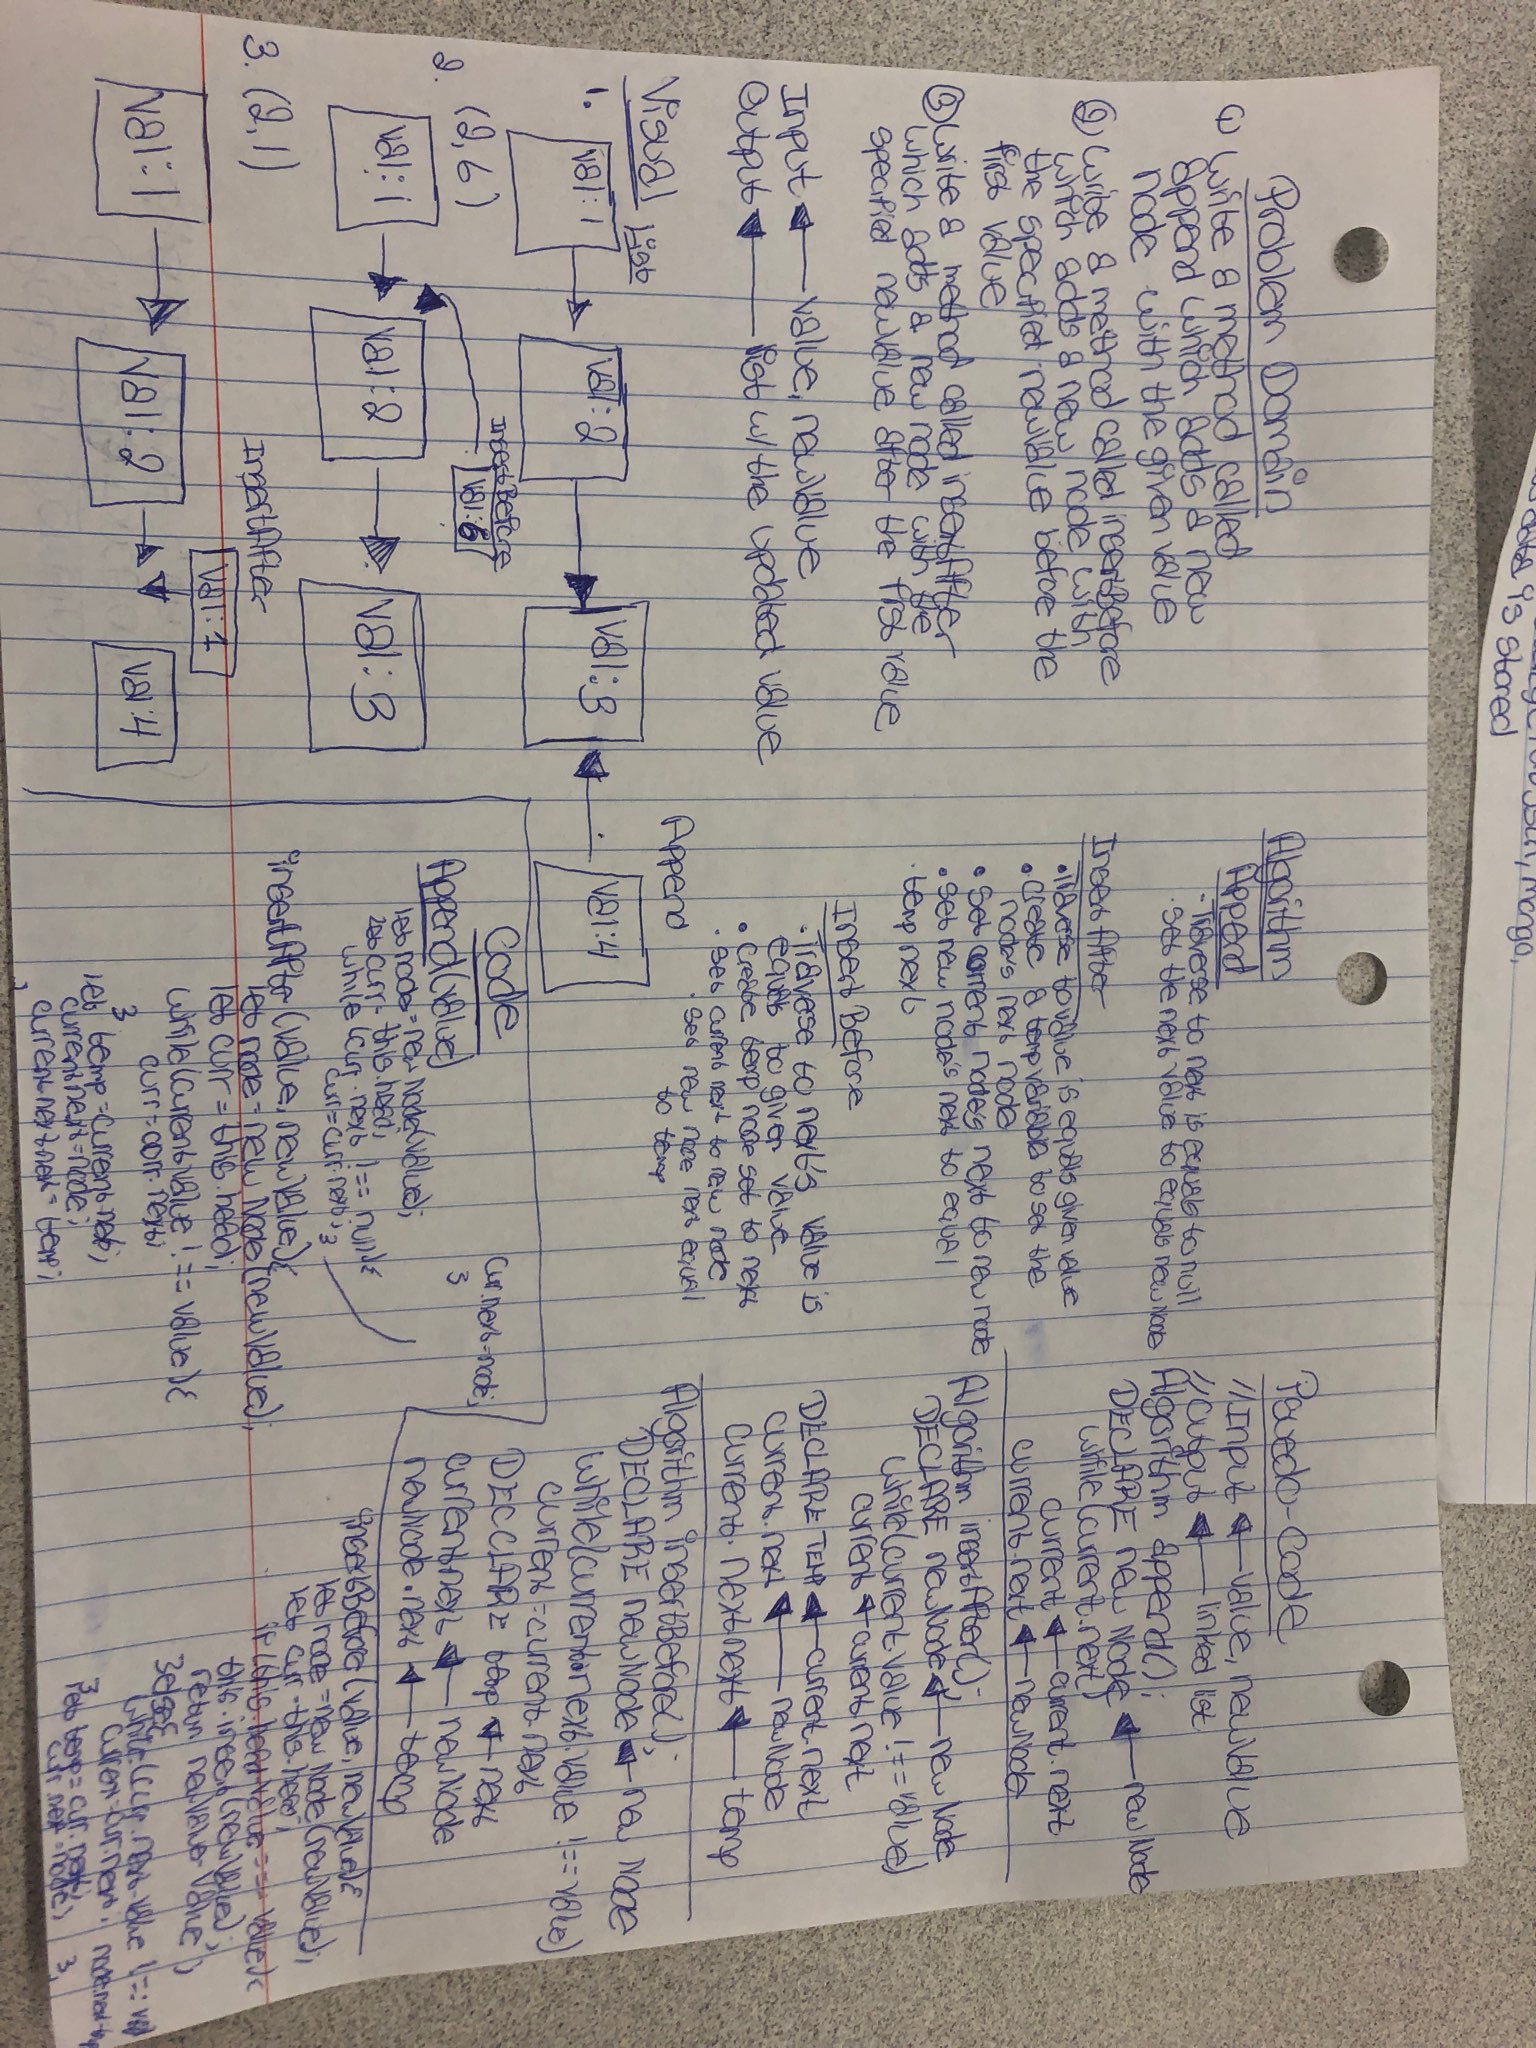 Problem Domain
1) write a method called
append which adds a new
node with the given value
2) write a method called insertBefore
which adds a new node with
the specified newValue before the
first value
3) write a method called insertAfter
which adds a new node with the
specified newValue after the first value
Input ← value, newValue
Output ← list w/ the updated value
Visual List
1.
Val:1
Val:2
Val:3
Val:4
Append
2. (2,6)
Insert Before
Val:6
Val:1
Val:2
Val:3
3. (2,1)
InsertAfter
Val:1
Val:1
Val:2
Val:4
Algorithm
Append
· Traverse to next is equals to null
· Set the next value to equals new Node
Insert After
• Traverse to value is equals given value
• Create a temp variable to set the
node's next node
• Set current nodes next to new node
• Set new node's next to equal
temp next
Insert Before
· Traverse to next's value is
equals to given value
• Create temp node set to next
· Set current next to new node
· Set new node next equal
to temp
Code
Append(value)
let node = new Node(value);
let curr = this.head;
while (curr.next !== null{
curr = curr.next; }
cur.next = node;
}
insertAfter (value, newValue){
let node = new Node(newValue);
let curr = this.head;
while(current.value !== value){
curr = curr.next;
}
let temp = current.next;
current.next = node;
current.next.next = temp;
Psuedo-Code
//Input ← value, newValue
//Output ← linked list
Algorithm append();
DECLARE new Node ← new Node
while(current.next)
current ← current.next
current.next ← newNode
Algorithm insertAfter();
DECLARE newNode ← new Node
while(current.value !== value)
current ← current.next
DECLARE TEMP ← current.next
current.next ← newNode
current.next.next ← temp
Algorithm insertBefore();
DECLARE newNode ← new Node
while(current.next.value !== value)
current = current.next
DECLARE temp ← next
current.next ← newNode
newNode.next ← temp
insertBefore (value, newValue){
let node = new Node(newValue);
let curr = this.head;
if (this.head.value === value){
this.insert(newValue);
return newValue
}else{
while(curr.next.value !== val
current = cur.next;
}
let temp = cur.next;
cur.next = node;
is stored
mango,